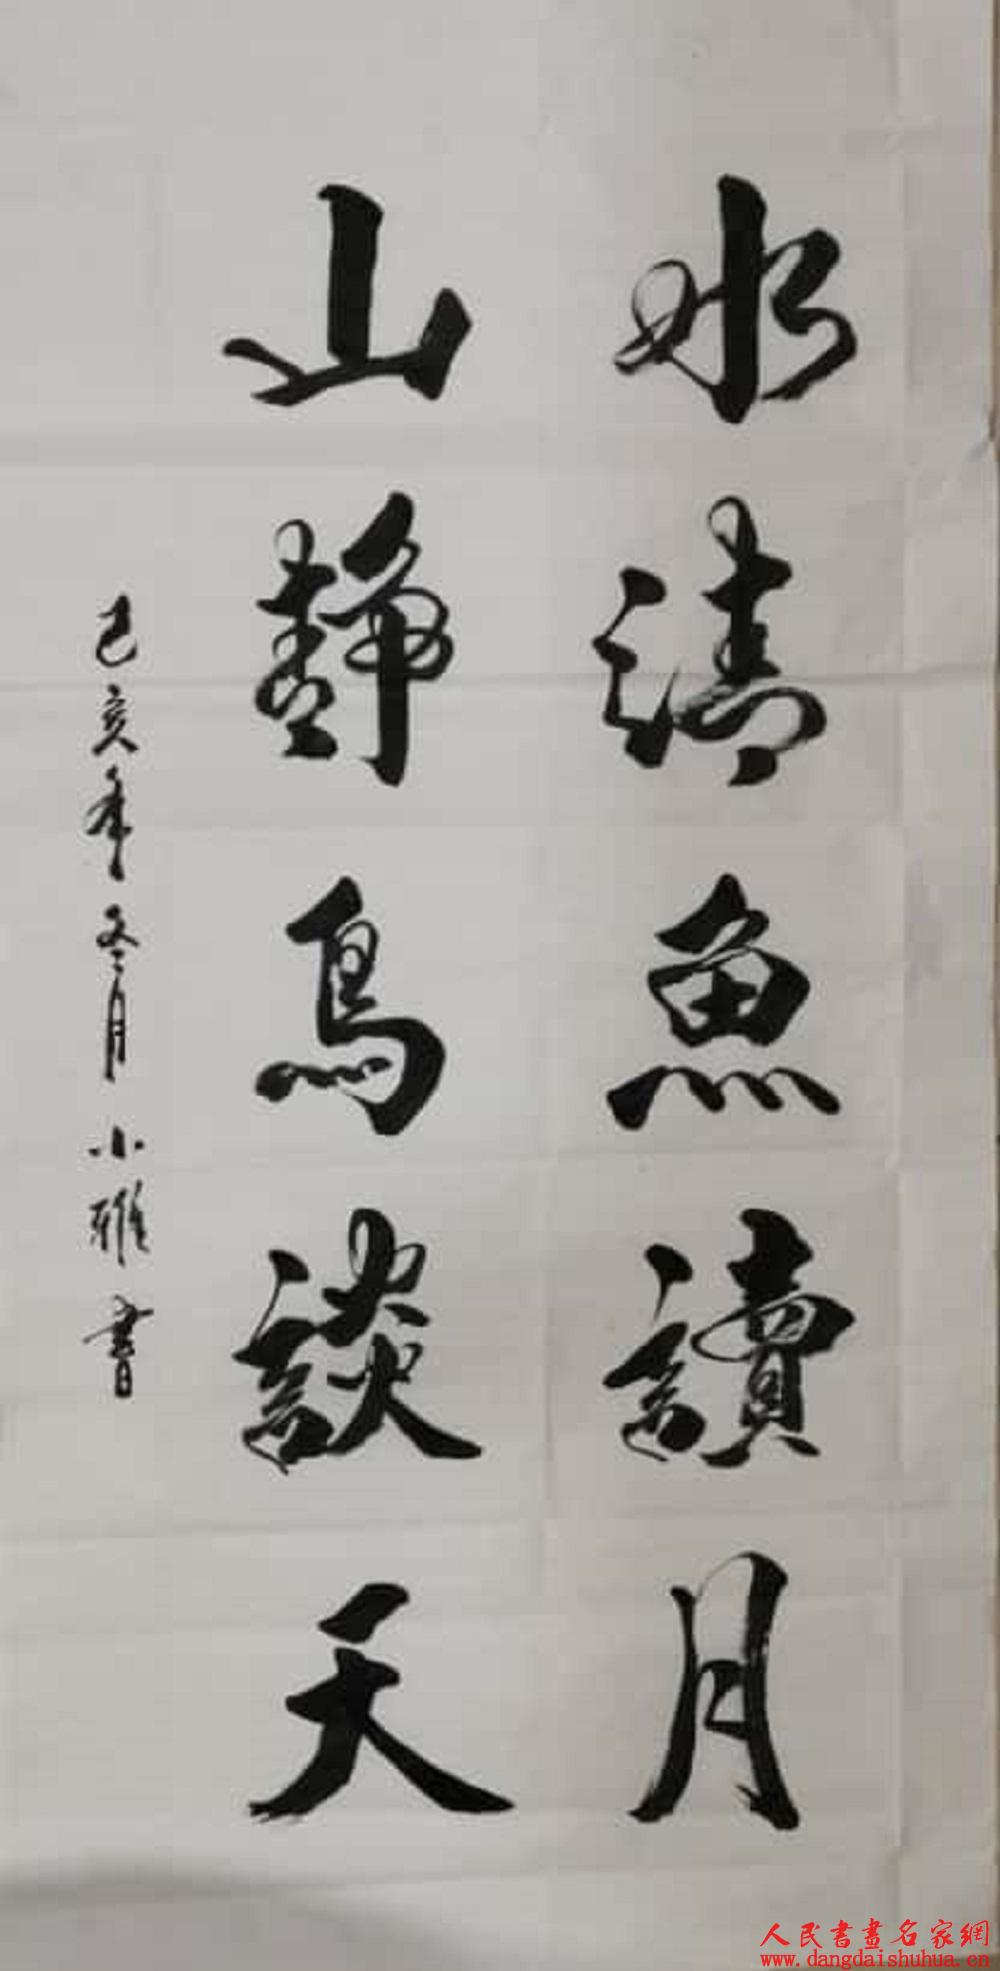 水清魚讀月
山靜鳥談天
己亥年冬月小雅書
人民書畫名家網
www.dangdaishuhua.cn